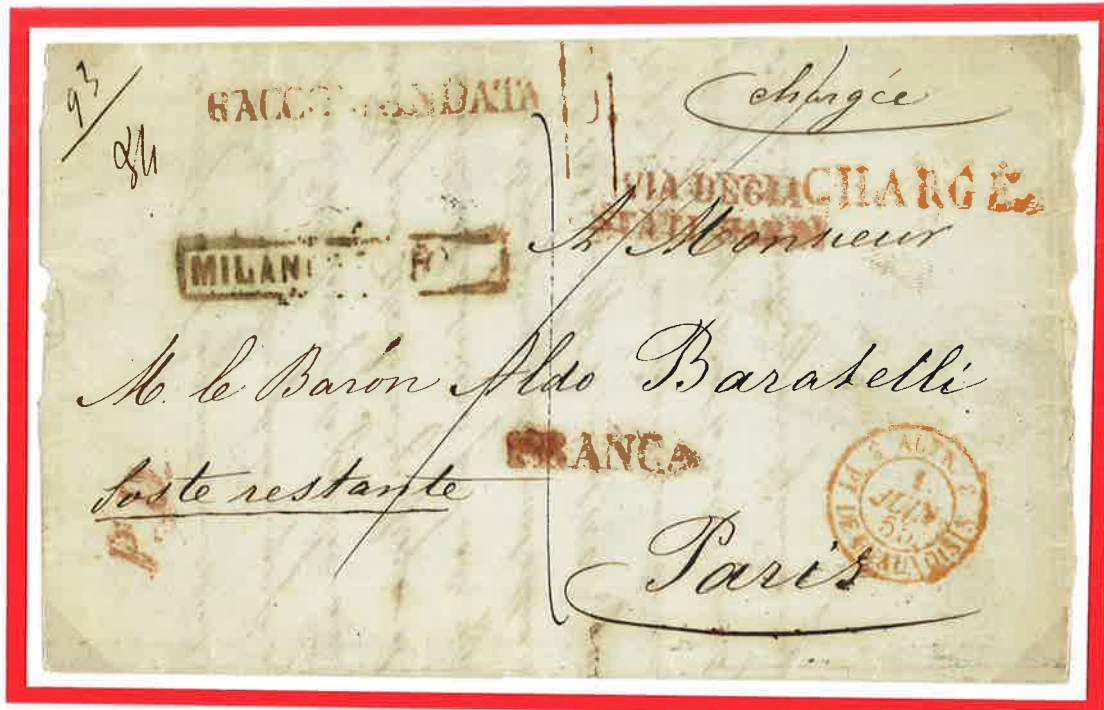 93
84
RACCOMANDATA
chargée
VIA DEGLI
CHARGÉ
A Monsieur
MILANO
M. le Barón Aldo Baratelli
FRANCA
poste restante
1
JUIN
Paris